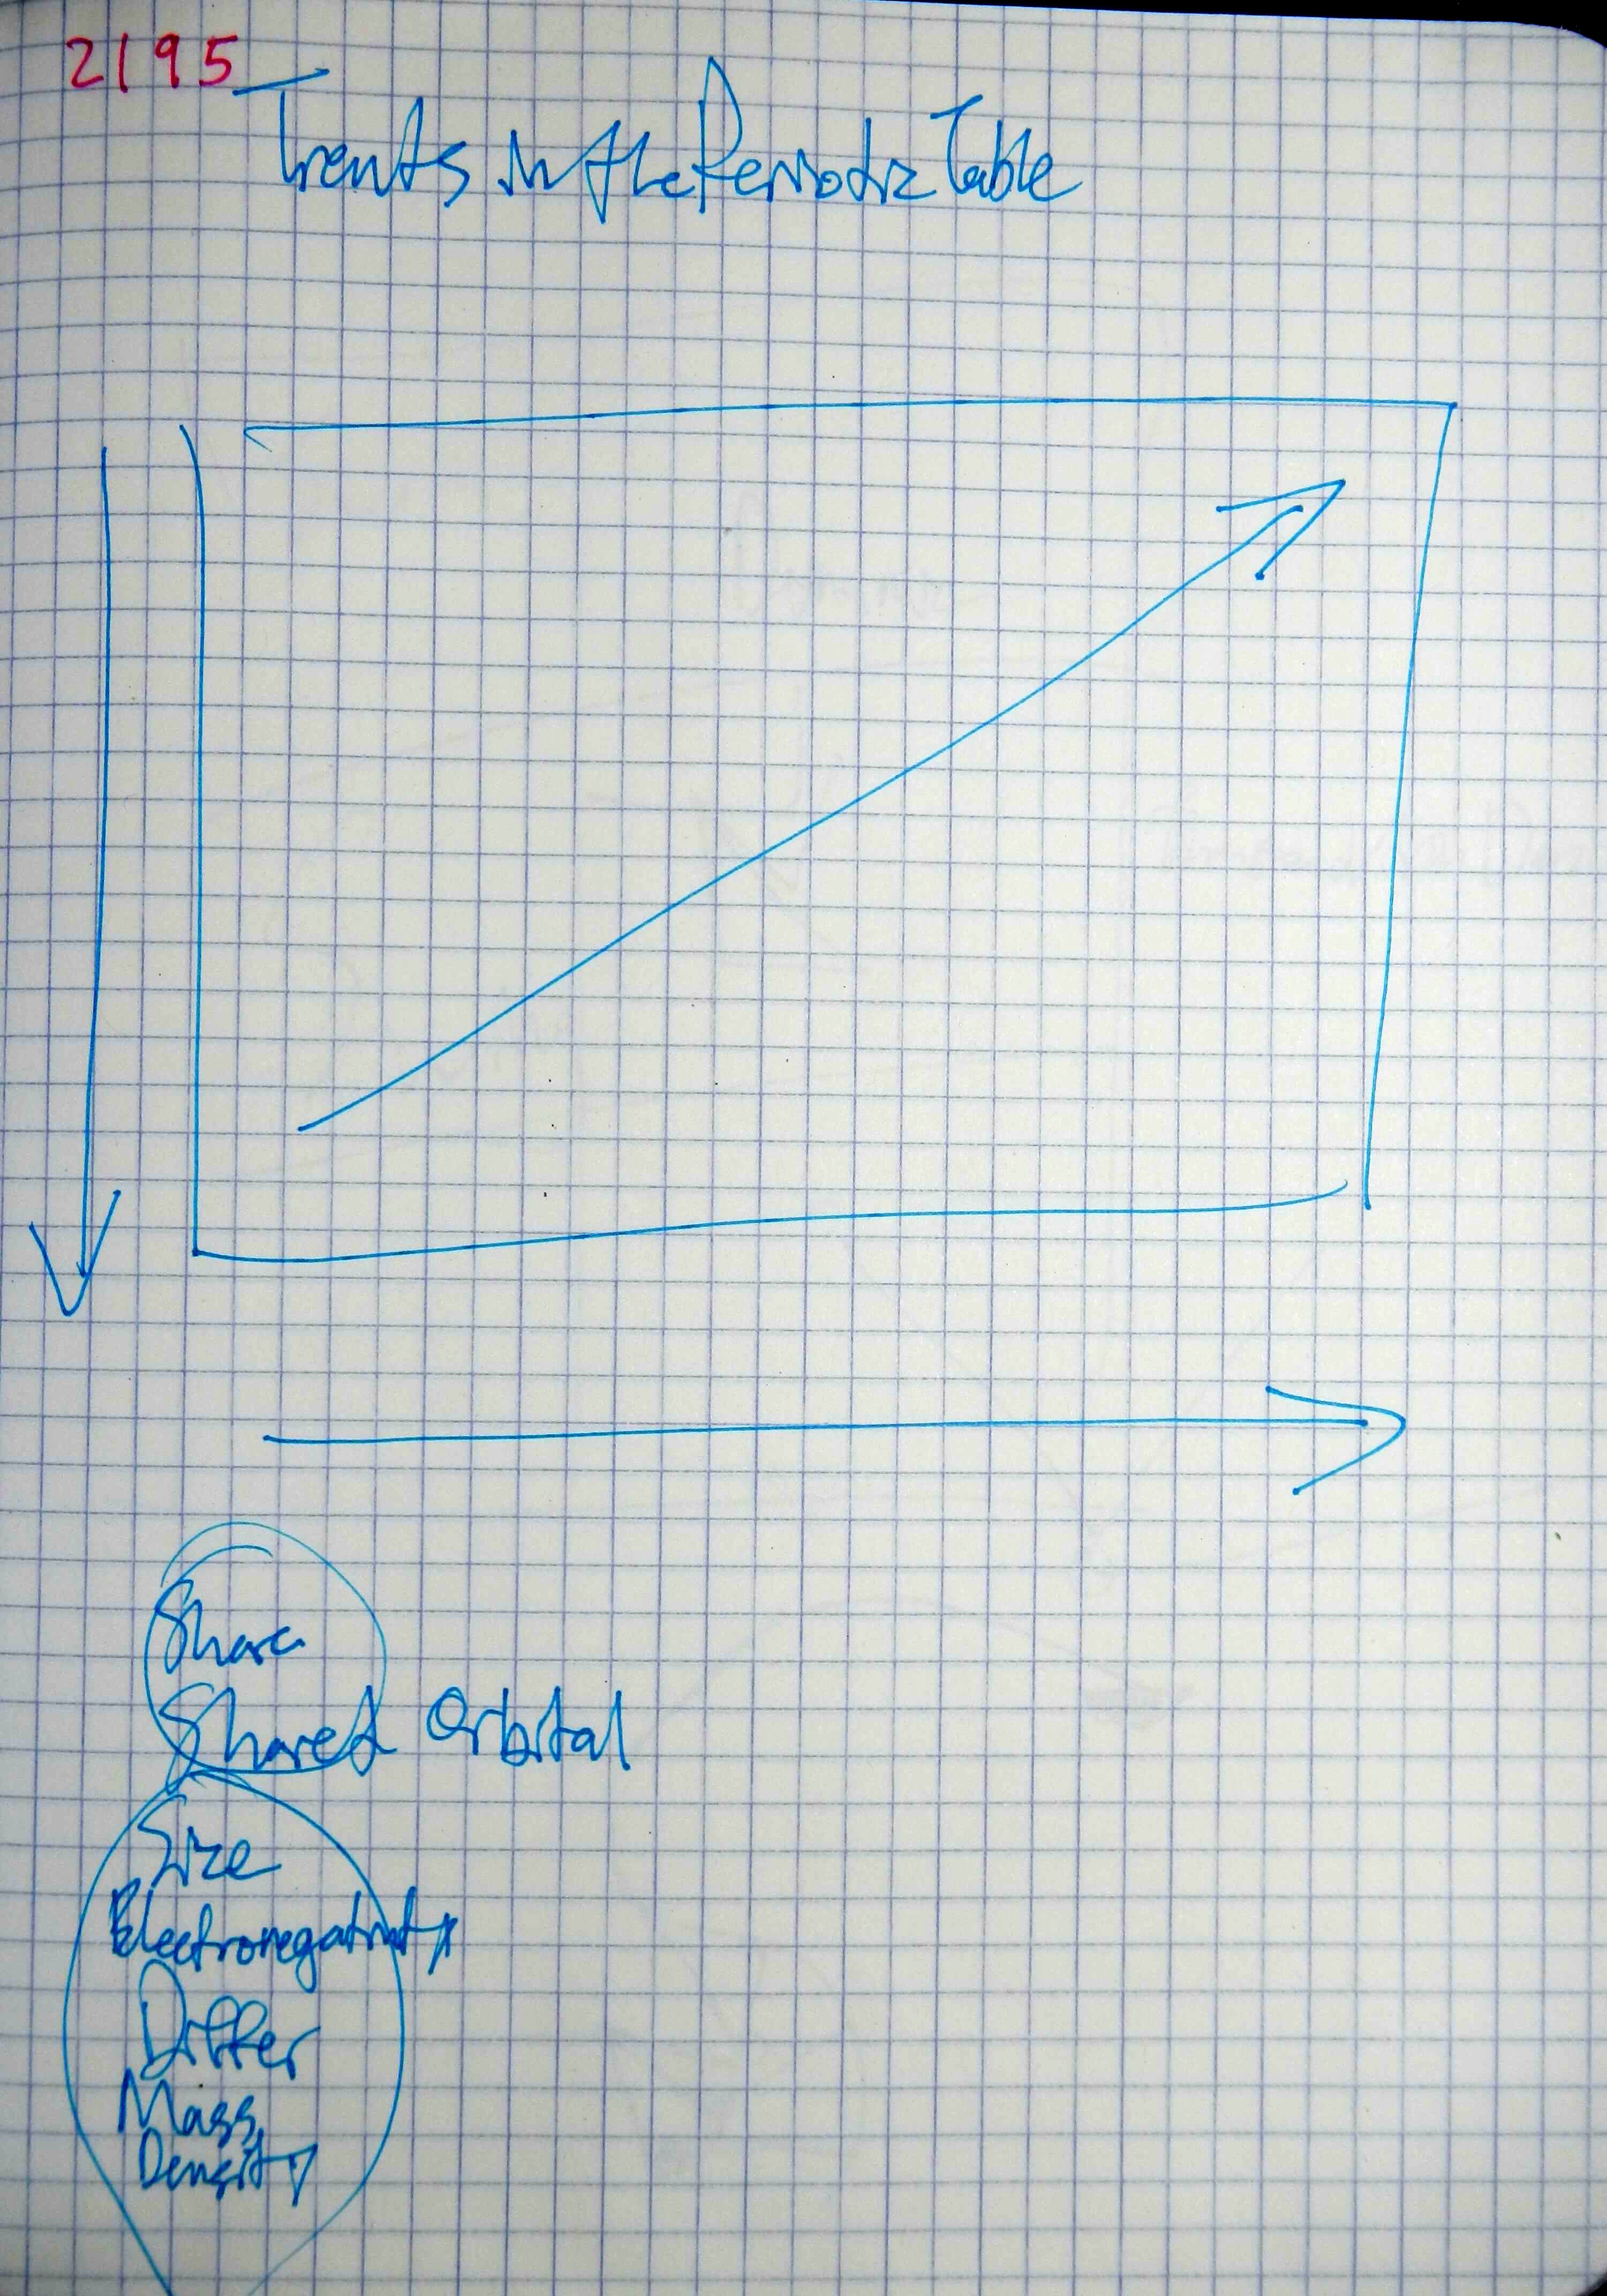 2195
Trents in the Periodic Table
Share
Shared Orbital
Size
Electronegativity
Differ
Mass,
Density